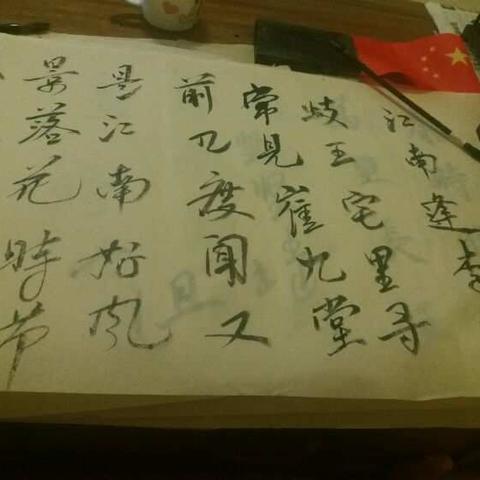 江南逢李
歧王宅里寻
常见崔九堂
前几度闻又
是江南好风
景落花时节